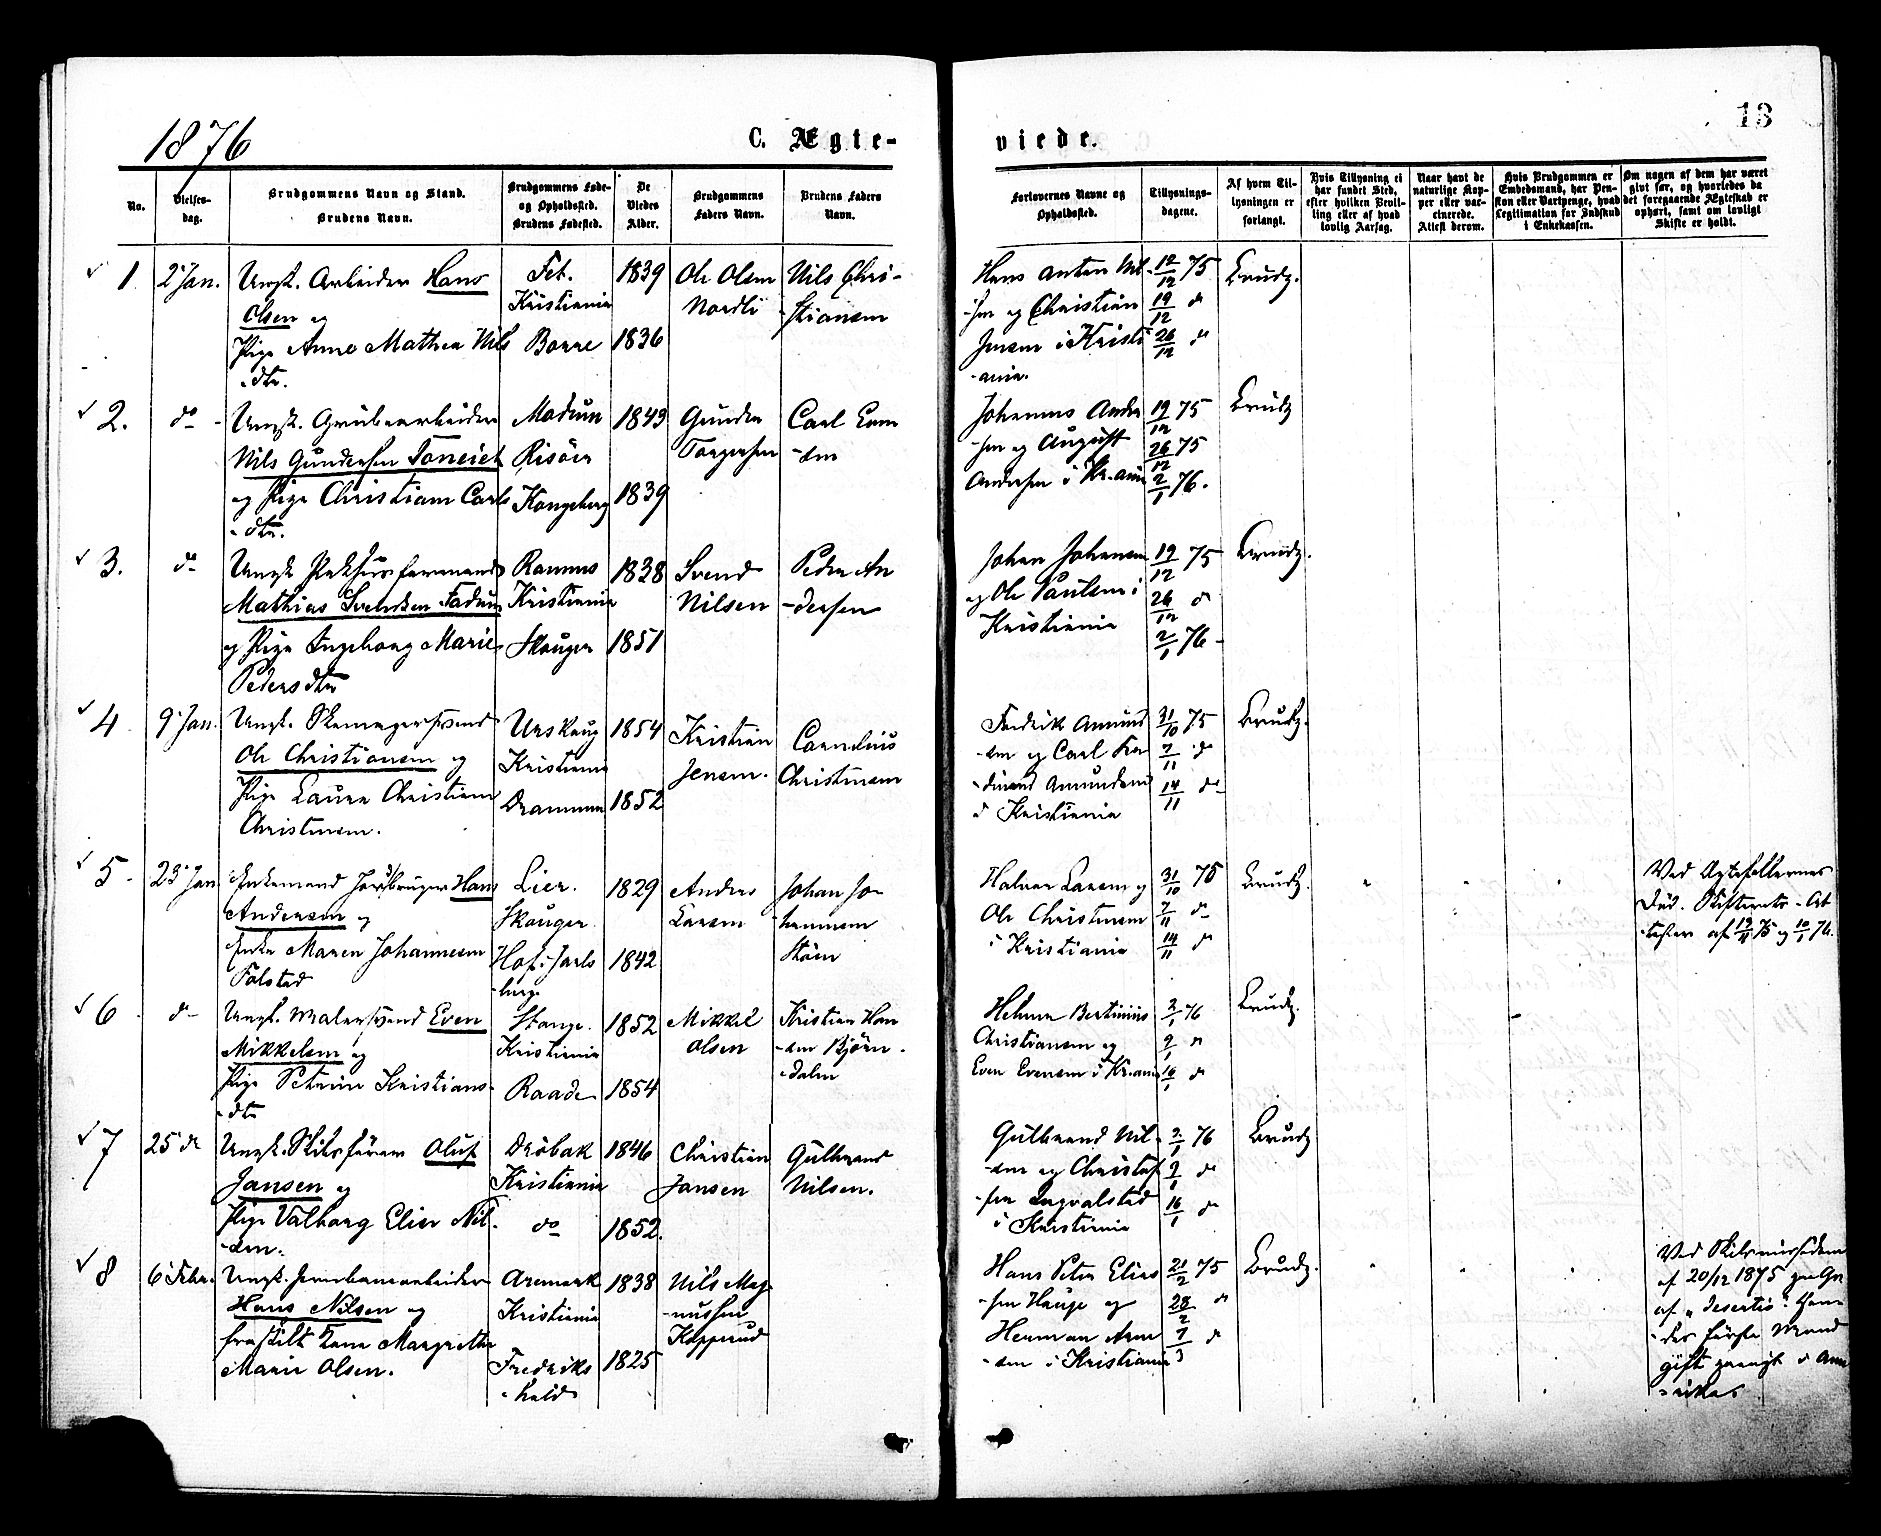 1876
C. Ægte-
viede.
13
No.
Vielses-
dag.
Brudgommens Navn og Stand.
Brudens Navn.
Brudgommens Føde-
og Opholdssted.
Brudens Fødested.
De
Viedes
Alder.
Brudgommens
Faders Navn.
Brudens Faders
Navn.
Forlovernes Navne og
Opholdssted.
Tillysnings-
dagene.
Af hvem Til-
lysningen er
forlangt.
Hvis Tillysning ei
har fundet Sted,
efter hvilken Bevil-
ling eller af hvad
lovlig Aarsag.
Naar havt de
naturlige Kop-
per eller vac-
cinerede.
Attest derom.
Hvis Brudgommen er
Embedsmand, har Pen-
sion eller Vartpenge, hvad
Legitimation for Indskud
i Enkekassen.
Om nogen af dem har været
gift før, og hvorledes da
det foregaaende Ægteskab er
ophørt, samt om lovligt
Skifte er holdt.
1.
2 Jan.
Ungk. Arbeider Hans
Olsen og
Pige Anne Mathea Nils
-dtr.
Fet.
Kristiania
Borre
1839
1836
Ole Olsen
Nordli
Nils Chri-
-stiansen
Hans Anton Nil-
-sen og Christian
Jensen i Kristi
-ania.
12/12 75
19/12 do
26/12 do
Brudg.
2.
do
Ungk. Grubearbeider
Nils Gundersen
og Pige Christiane Carls
-dtr.
Modum
Risöer
Kongsberg
1843
1839
Gunder
Torgersen
Carl
Johannes Andre
-sen og August
Andersen i Kr.ania
19/12 75
26/12 75
2/1 76.
Brudg
3.
do
Ungk. Pakhusformand
Mathias Svendsen Fadum
og Pige Ingeborg Marie
Pedersdtr
Ramnes
Kristiania
Skouger
1828
1851
Svend
Nilsen
Peder An
-dersen
Johan Johansen
og Ole Paulsen i
Kristiania
19/12 75
26/12 do
2/1 76-
Brudg.
4
9 Jan.
Ungk. Skomagersvend
Ole Christiansen og
Pige Laura Christine
Christensen.
Urskoug
Kristiania
Drammen
1854
1852
Kristian
Jensen.
Cornelius
Christensen
Fredrik Amund
-sen og Carl Fer
-dinand Amundsen
i Kristiania
31/10 75
7/11 do
14/11 do
Brudg.
5
23 Jan
Enkemand Jordbruger Hans
Andersen og
Enke Maren Johannesen
Folstad
Lier.
Skouger
Hof. Jarls
-berg.
1829
1842
Anders
Larsen
Johan Jo-
hannesen
Halvor Larsen og
Ole Christensen
i Kristiania
31/10 75
7/11 do
14/11 do
Brudg.
Ved Ægtefællernes
Död. Skifterets-At
-tester af 19/11 75 og 10/1 76.
6
do
Ungk. Malersvend Even
Mikkelsen og
Pige Petrine Kristians-
-dtr
Stange.
Kristiania
Raade
1852
1854
Mikkel
Olsen
Kristian Han
-sen Björn-
-dalen
Helmer Bertinius
Christiansen og
Even Evensen i Kr.ania
2/1 76
9/1 do
16/1 do
Brudg.
7
25 do
Ungk. Skibsförer Oluf
Jansen og
Pige Valborg Elise Nil-
-sen.
Dröbak
Kristiania
do
1846
1852.
Christian
Jansen
Gulbrand
Nilsen.
Gulbrand Nil-
-sen og Christof
-fer Ingvalstad
i Kristiania
2/1 76
9/1 do
16/1 do
Brudg
8
6 Febr.
Ungk. Jernbanearbeider
Hans Nilsen og
fraskilt Kone Margrethe
Marie Olsen.
Aremark
Kristiania
Fredriks
-hald
1838
1825
Nils Mag-
-nussen
Kopperud
Hans Peter Elias
-sen Hauge og
Herman Arne
-sen i Kristiania
21/2 75
28/2 do
7/3 do
Brudg.
Ved Skilsmissedom
af 20/12 1875 paa Gr.
af "desertio". Hen-
-des förste Mand
gift paanyt i Ame
-rika.